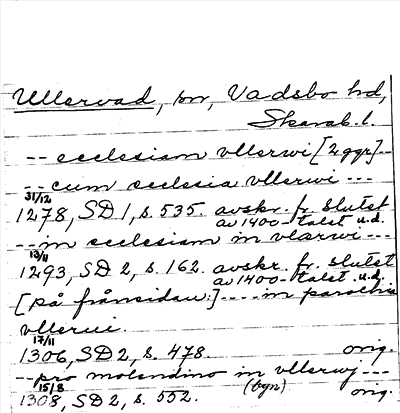 Ullervad, sn, Vadsbo hd,
Skarab. l.
-- ecclesiam vllerwi [2 ggr]--
-- cum ecclesia vllerwi ---
31/12
1278, SD 1, s. 535. avskr. fr. slutet
av 1400-talet u.d.
-- in ecclesiam in vlærwi ---
13/11
1293, SD 2, s. 162. avskr. fr. slutet
av 1400-talet u.d.
[på frånsidan:] ---- in parochia
vllerui.
17/11
1306, SD 2, s. 478. orig.
-- pro molendino in vllerwj ---
15/8 (byn)
1308, SD 2, s. 552. orig.